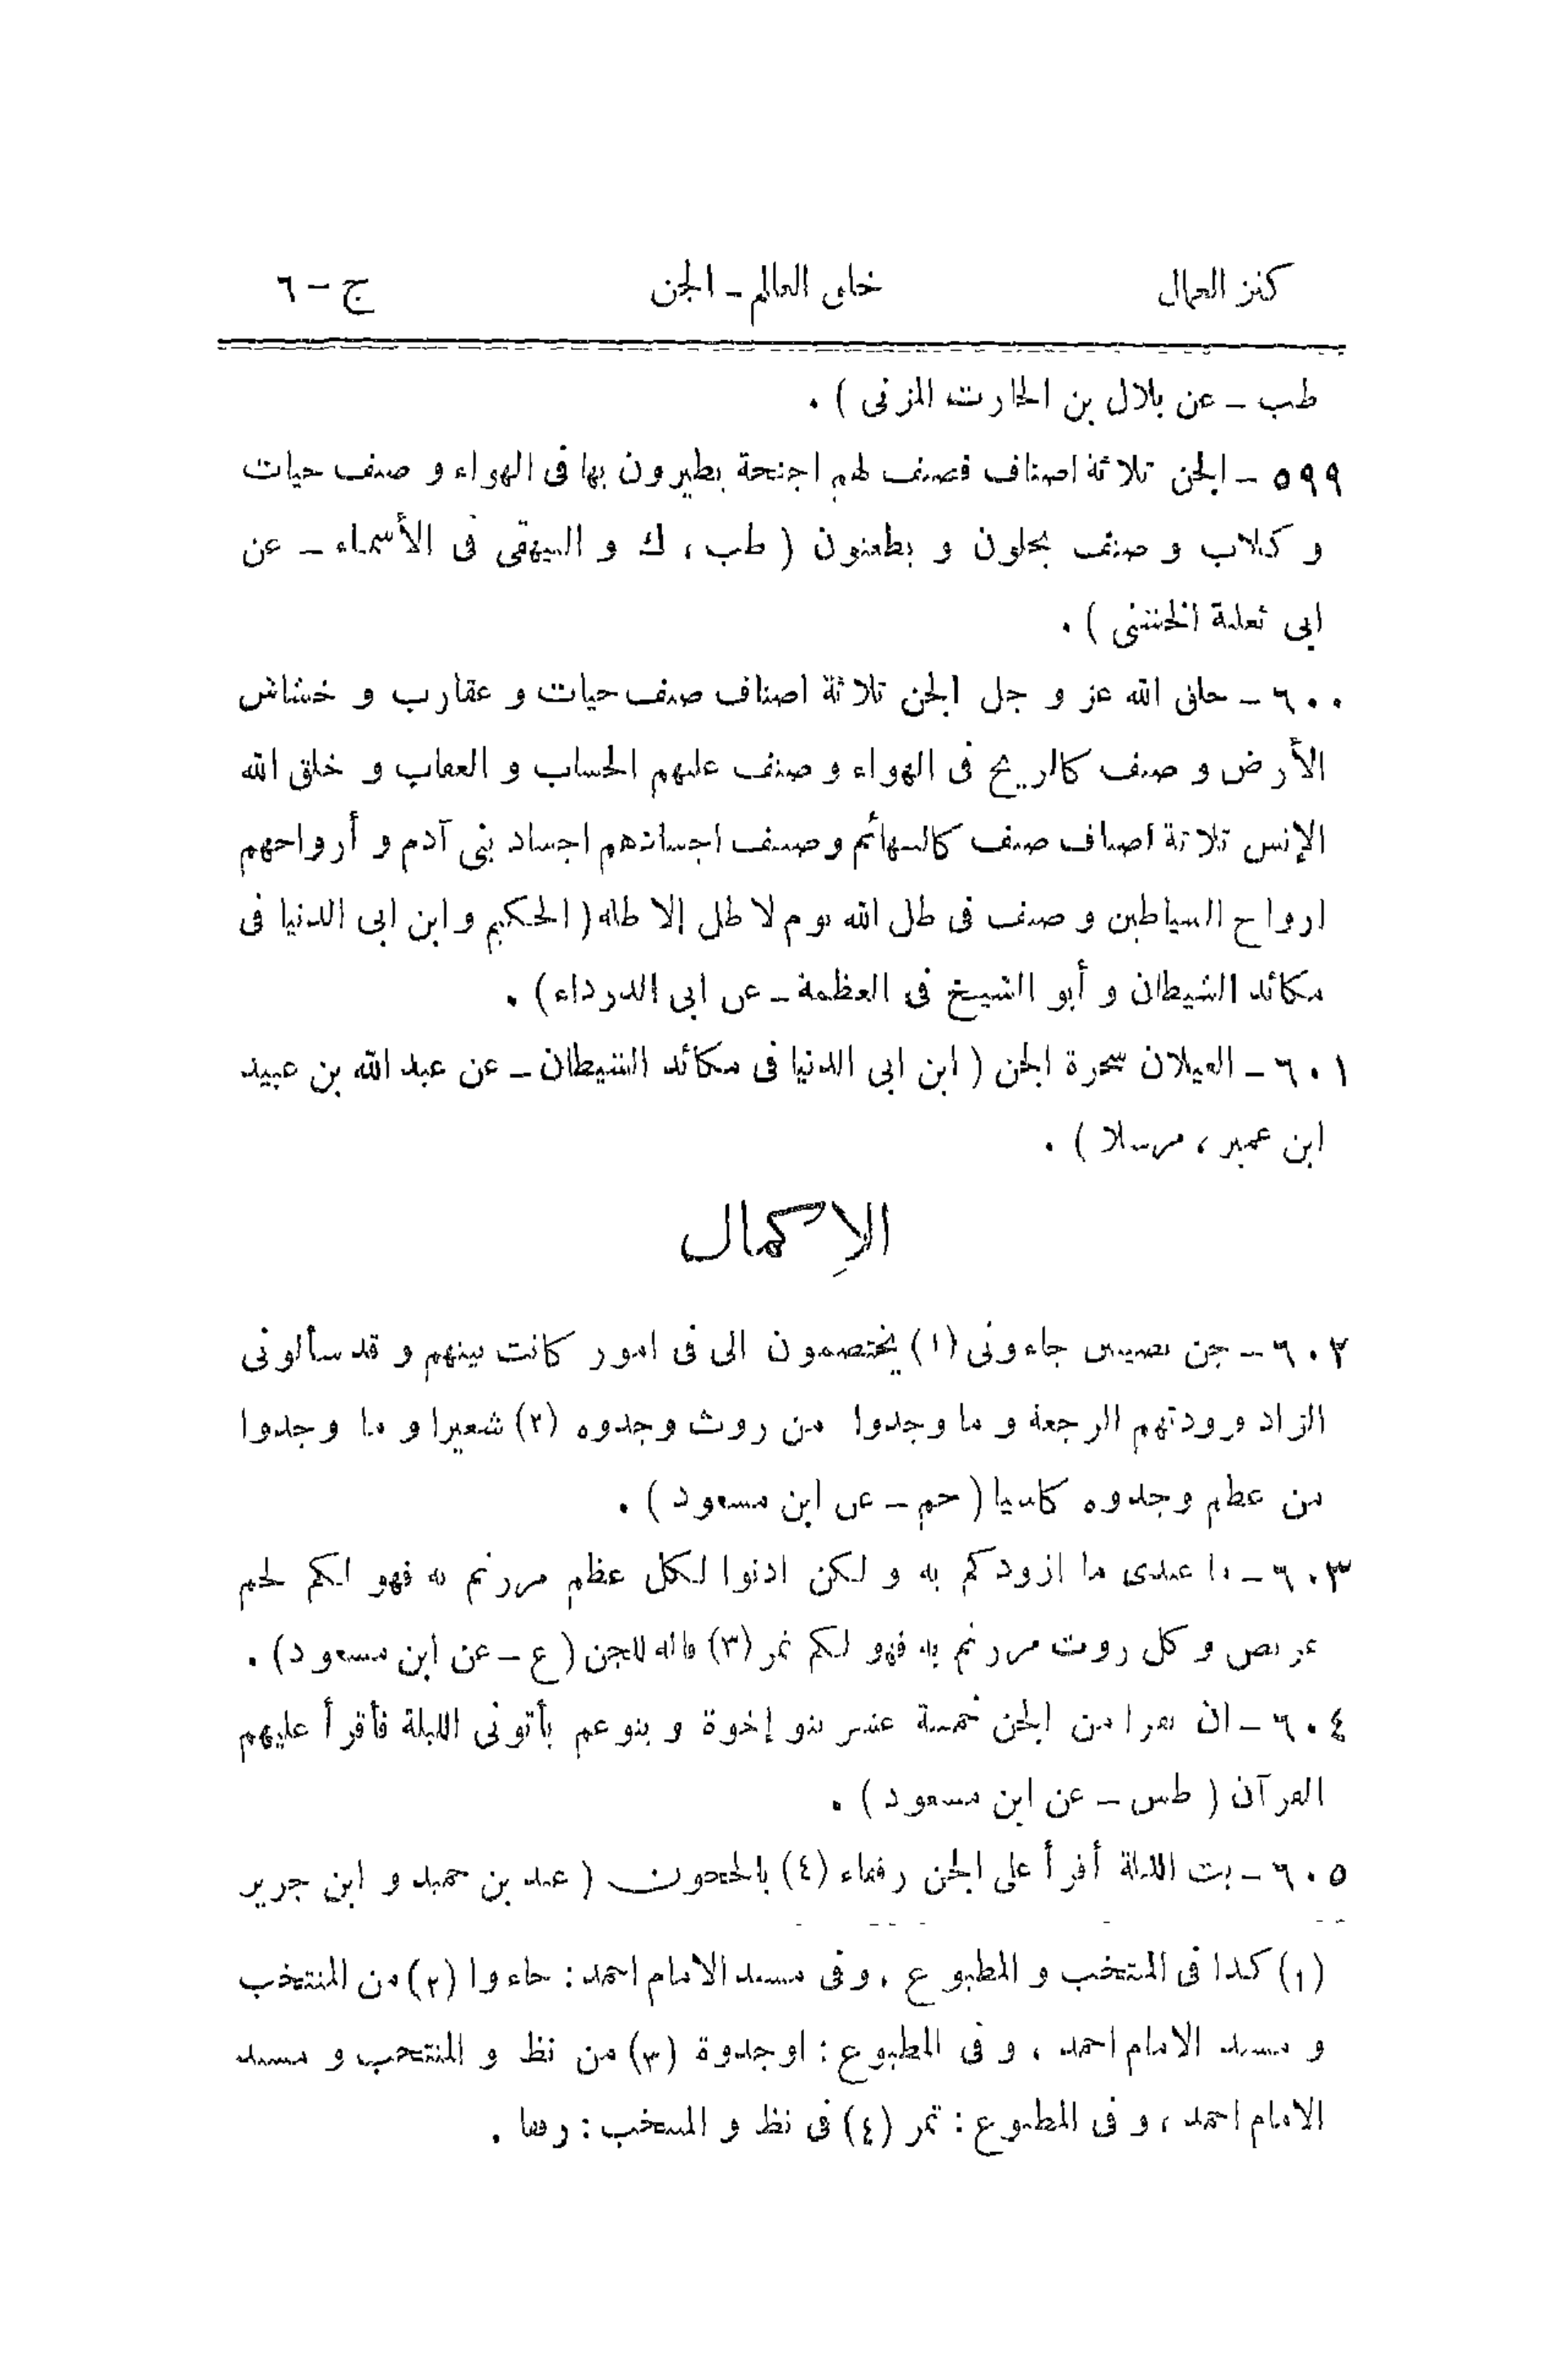 كنز العمال خلق العالم ـ الجن ج - ٦
طب ـ عن بلال بن الحارث المزنى ) .
٥٩٩ ـ الجن ثلاثة اصناف فصنف لهم اجنحة يطيرون بها فى الهواء و صنف حيات
و كلاب و صنف يحلون و يظعنون ( طب ، ك و البيهقى فى الأسماء ـ عن
ابى ثعلبة الخشنى ) .
٦٠٠ ـ خلق الله عز و جل الجن ثلاثة اصناف صنف حيات و عقارب و خشاش
الأرض و صنف كالريح فى الهواء و صنف عليهم الحساب و العقاب و خلق الله
الإنس ثلاثة اصناف صنف كالبهائم و صنف اجسادهم اجساد بنى آدم و أرواحهم
ارواح الشياطين و صنف فى ظل الله يوم لا ظل إلا ظله ( الحكيم و ابن ابى الدنيا فى
مكائد الشيطان و أبو الشيخ فى العظمة ـ عن ابى الدرداء ) .
٦٠١ ـ الغيلان سحرة الجن ( ابن ابى الدنيا فى مكائد الشيطان ـ عن عبد الله بن عبيد
ابن عمير ، مرسلا ) .
الإكمال
٦٠٢ ـ جن نصيبين جاءونى (١) يختصمون الى فى امور كانت بينهم و قد سألونى
الزاد فزودتهم الرجعة و ما وجدوا من روث وجدوه (٢) شعيرا و ما وجدوا
من عظم وجدوه كاسيا ( حم ـ عن ابن مسعود ) .
٦٠٣ ـ ما عندى ما ازودكم به و لكن ادنوا لكل عظم مررتم به فهو لكم لحم
عريض و كل روث مررتم به فهو لكم تمر (٣) قاله للجن ( ع ـ عن ابن مسعود ) .
٦٠٤ ـ ان نفرا من الجن خمسة عشر بنو إخوة و بنو عم يأتونى الليلة فأقرأ عليهم
القرآن ( طس ـ عن ابن مسعود ) .
٦٠٥ ـ بت الليلة أقرأ على الجن رفقاء (٤) بالحجون ( عبد بن حميد و ابن جرير
(١) كذا فى المنتخب و المطبوع ، و فى مسند الامام احمد : جاءوا (٢) من المنتخب
و مسند الامام احمد ، و فى المطبوع : اوجدوة (٣) من نظ و المنتخب و مسند
الامام احمد ، و فى المطبوع : ثمر (٤) فى نظ و المنتخب : رفقا .